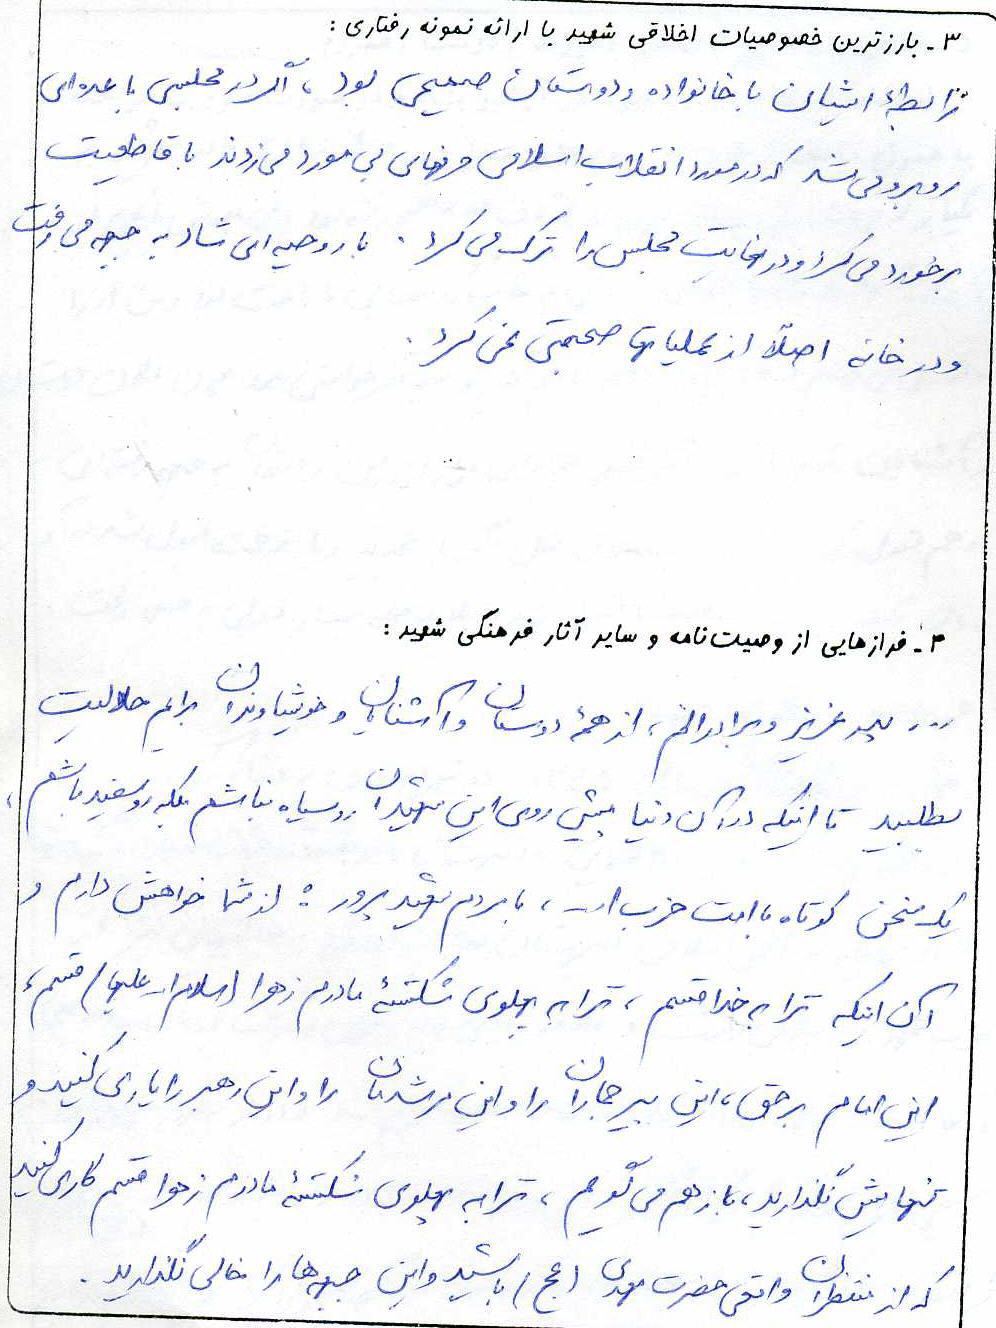 ۳ـ بارزترین خصوصیات اخلاقی شهید با ارائه نمونه رفتاری :
رابطهٔ ایشان با خانواده و دوستان صمیمی بود ، اگر در مجلسی با عده‌ای
روبرو می‌شد که در مورد انقلاب اسلامی حرفهای بی مورد می‌زدند با قاطعیت
برخورد می‌کرد و در نهایت مجلس را ترک می‌کرد . با روحیه‌ای شاد به جبهه می‌رفت
و در خانه اصلاً از عملیاتها صحبتی نمی‌کرد .
۴ـ فرازهایی از وصیت‌نامه و سایر آثار فرهنگی شهید :
... پدر عزیز و برادرانم ، از همهٔ دوستان و آشنایان و خوشیاوندان برایم حلالیت
بطلبید تا اینکه در آن دنیا پیش روی این شهیدان روسیاه نباشم بلکه روسفید باشم ،
یک سخن کوتاه با امت حزب ا... ، با مردم شهید پرور : از شما خواهش دارم و
آن اینکه ترا به خدا قسم ، ترا به پهلوی شکستهٔ مادرم زهرا (سلام ا... علیها) قسم ،
این امام برحق ، این پیر جماران را و این مرشدمان را و این رهبر را یاری کنید و
تنهایش نگذارید ، باز هم می‌گویم ، ترا به پهلوی شکستهٔ مادرم زهرا قسم کاری کنید
که از منتظران واقعی حضرت مهدی (عج) باشید و این جبهه‌ها را خالی نگذارید .